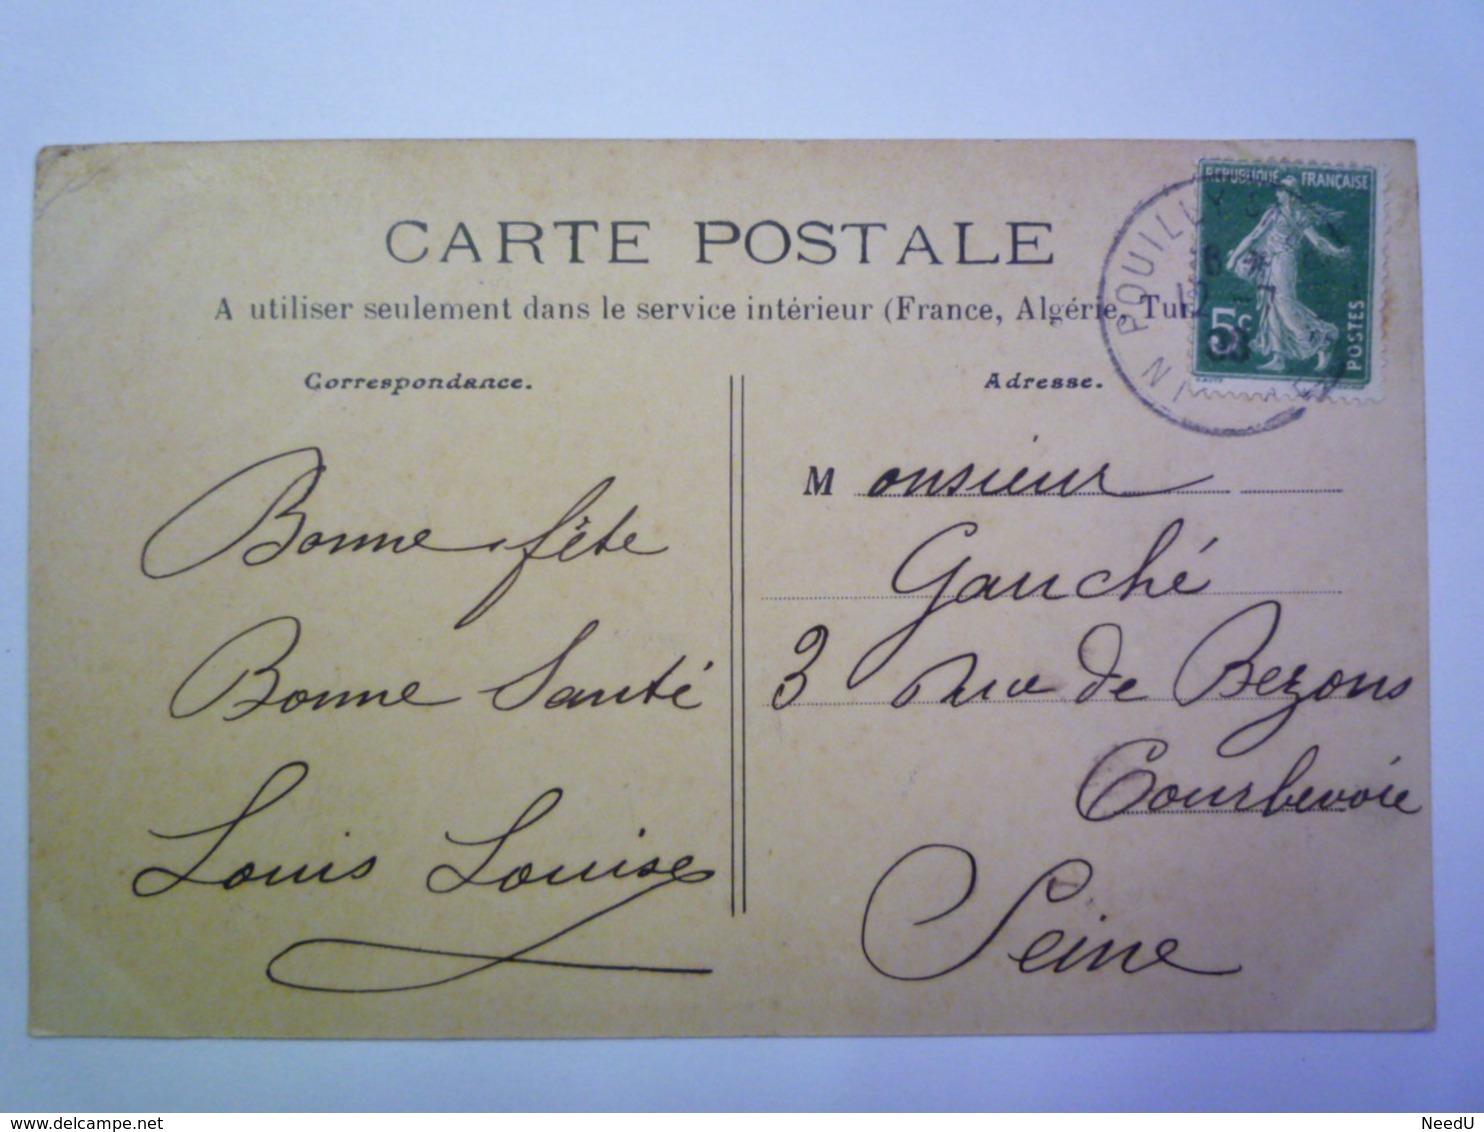 CARTE POSTALE
A utiliser seulement dans le service intérieur (France, Algérie,
Correspondance.
Adresse.
RÉPUBLIQUE FRANÇAISE
5c
POSTES
POUILLY
08
Bonne fête
Bonne Santé
Louis Louise
Monsieur
Gauché
3 rue de Bezons
Courbevoie
Seine
www.delcampe.net
NeedU